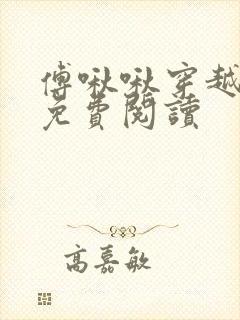 傅啾啾穿越
免費閱讀
高嘉敏